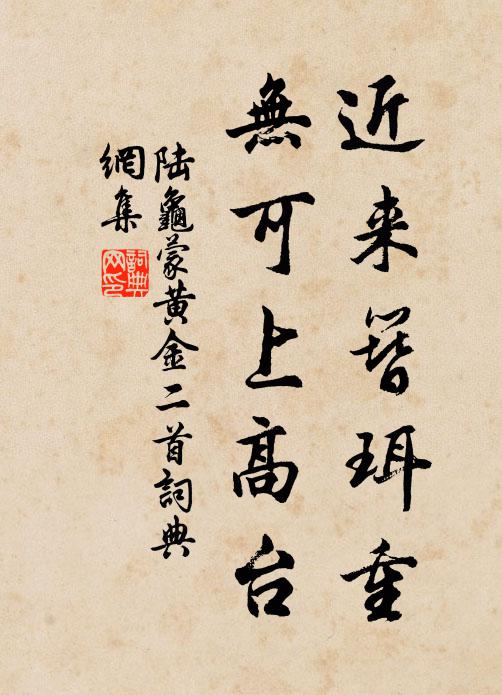 近来簪珥重
無可上高台
陆龜蒙黄金二首詞典
網集
詞典
网印